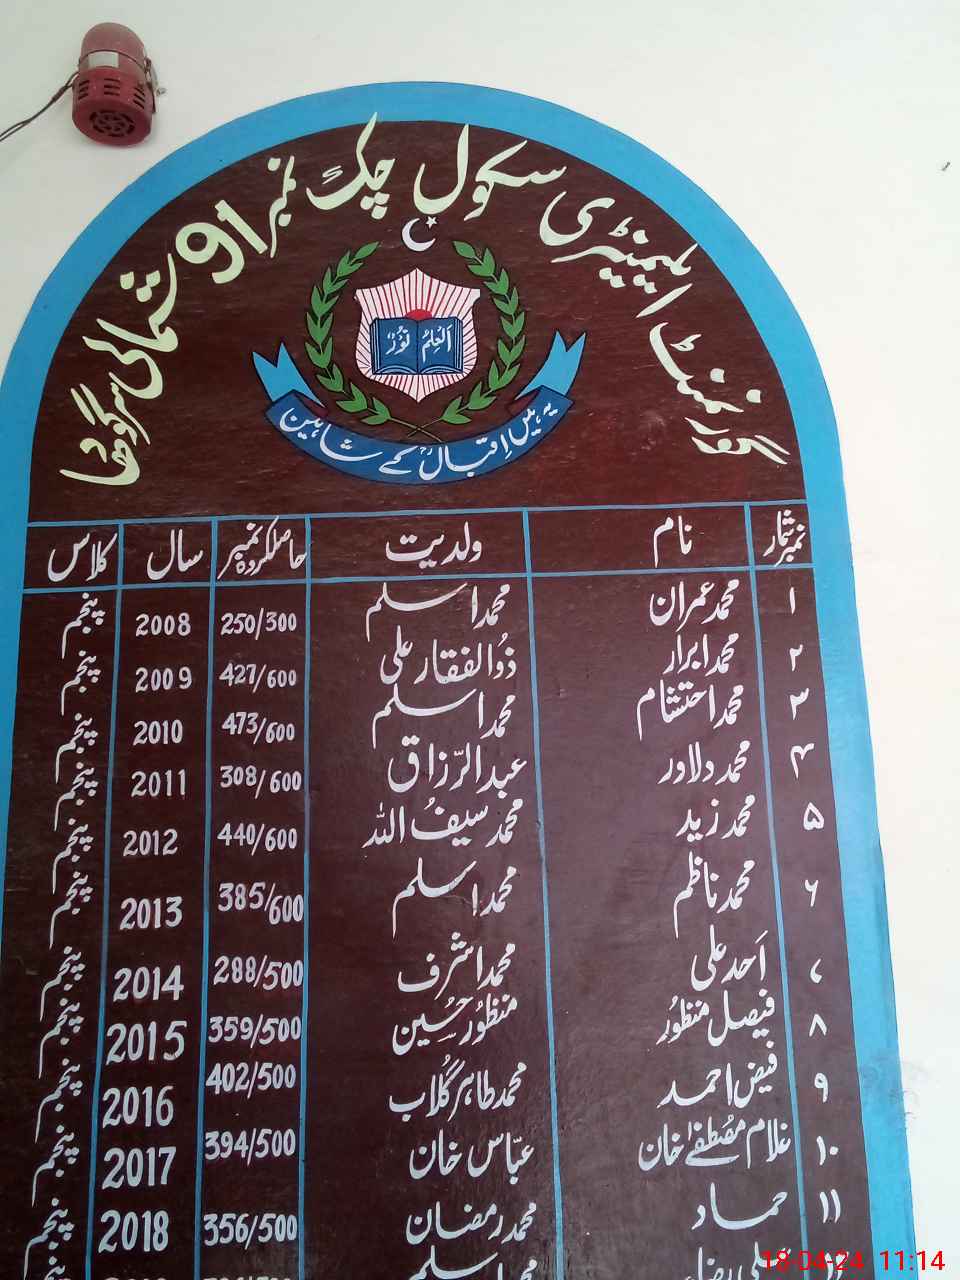 گورنمنٹ ایلیمینٹری سکول چک نمبر 91 شمالی سرگودھا
اَلْعِلمُ نُورٌ
یہ ہیں اقبالؒ کے شاہین
نمبر شمار نام ولدیت حاصل کردہ نمبر سال کلاس
۱ محمد عمران محمد اسلم 250/300 2008 پنجم
۲ محمد ابرار ذوالفقار علی 427/600 2009 پنجم
۳ محمد احتشام محمد اسلم 473/600 2010 پنجم
۴ محمد دلاور عبدالرّزاق 308/600 2011 پنجم
۵ محمد زید محمد سیفُ اللہ 440/600 2012 پنجم
۶ محمد ناظم محمد اسلم 385/600 2013 پنجم
۷ اَحد علی محمد اشرف 288/500 2014 پنجم
۸ فیصل منظُور منظُور حُسین 359/500 2015 پنجم
۹ فیض احمد محمد طاہر گُلاب 402/500 2016 پنجم
۱۰ غلام مصُطفےٰ خان عبّاس خان 394/500 2017 پنجم
۱۱ حماد محمد رمضان 356/500 2018 پنجم
محمد اسلم
18-04-24 11:14